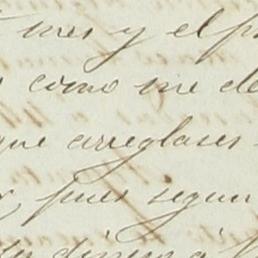 mes y el p
como me de
que arreglases
pues segun
dinero á